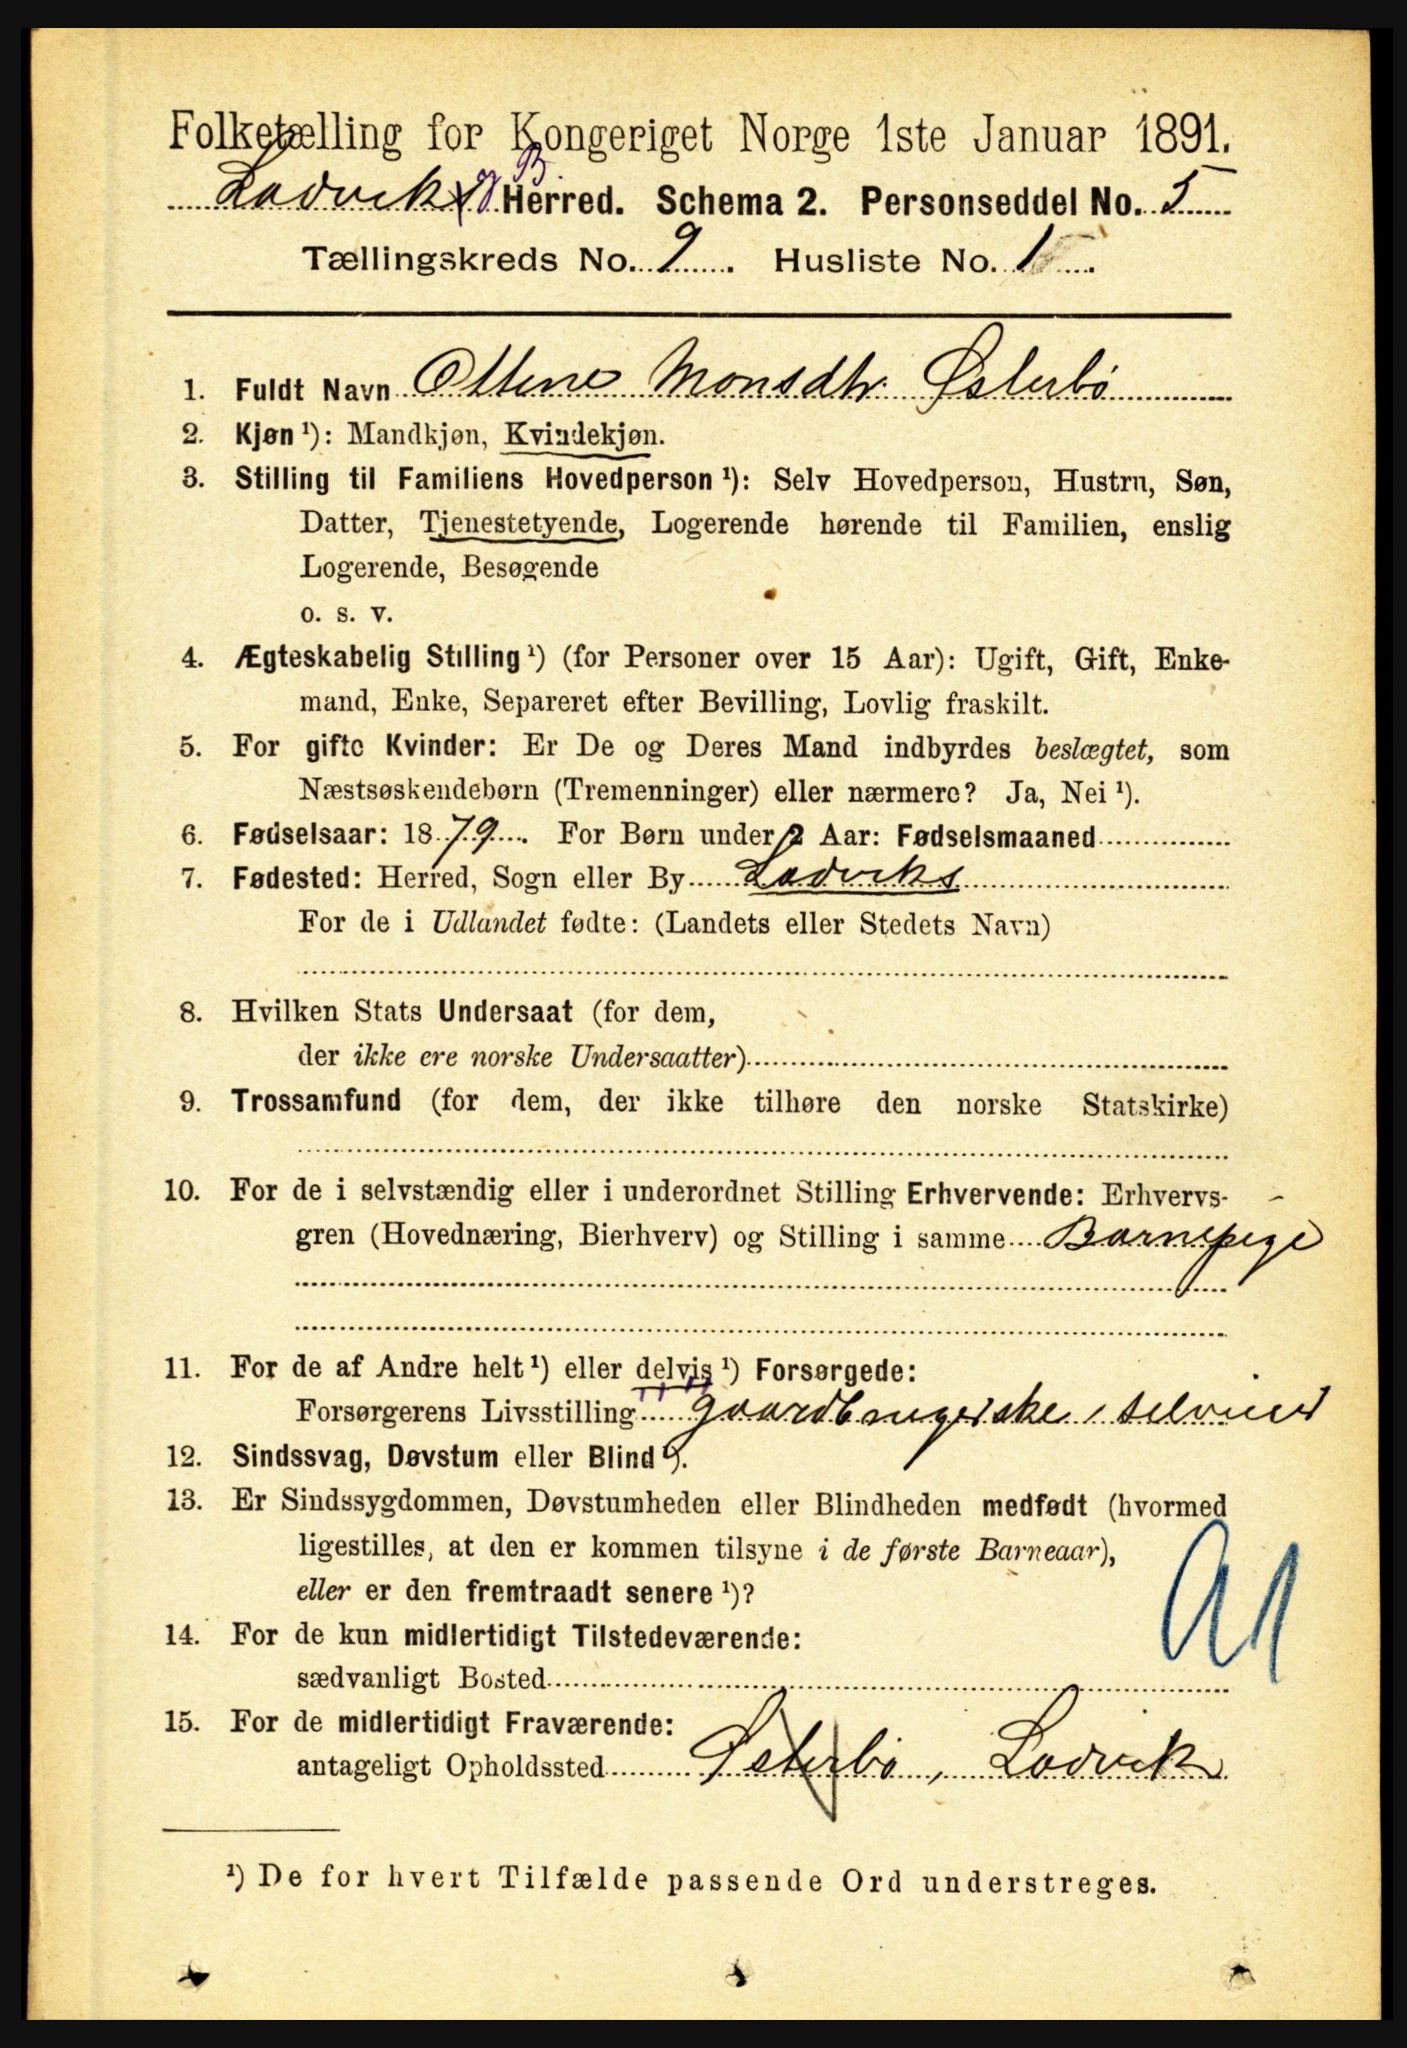 Folketælling for Kongeriget Norge 1ste Januar 1891.
Ladvik og B. Herred. Schema 2. Personseddel No. 5
Tællingskreds No. 9. Husliste No. 1.
1. Fuldt Navn Ottine Monsdtr. Østerbø
2. Kjøn ¹): Mandkjøn, Kvindekjøn.
3. Stilling til Familiens Hovedperson ¹): Selv Hovedperson, Hustru, Søn,
Datter, Tjenestetyende, Logerende hørende til Familien, enslig
Logerende, Besøgende
o. s. v.
4. Ægteskabelig Stilling ¹) (for Personer over 15 Aar): Ugift, Gift, Enke-
mand, Enke, Separeret efter Bevilling, Lovlig fraskilt.
5. For gifte Kvinder: Er De og Deres Mand indbyrdes beslægtet, som
Næstsøskendebørn (Tremenninger) eller nærmere? Ja, Nei ¹).
6. Fødselsaar: 1879. For Børn under 2 Aar: Fødselsmaaned
7. Fødested: Herred, Sogn eller By Ladviks
For de i Udlandet fødte: (Landets eller Stedets Navn)
8. Hvilken Stats Undersaat (for dem,
der ikke ere norske Undersaatter)
9. Trossamfund (for dem, der ikke tilhøre den norske Statskirke)
10. For de i selvstændig eller i underordnet Stilling Erhvervende: Erhvervs-
gren (Hovednæring, Bierhverv) og Stilling i samme Barnepige
11. For de af Andre helt ¹) eller delvis ¹) Forsørgede:
Forsørgerens Livsstilling gaardbrugerske, selveier
12. Sindssvag, Døvstum eller Blind ¹).
13. Er Sindssygdommen, Døvstumheden eller Blindheden medfødt (hvormed
ligestilles, at den er kommen tilsyne i de første Barneaar),
eller er den fremtraadt senere ¹)?
14. For de kun midlertidigt Tilstedeværende:
sædvanligt Bosted
15. For de midlertidigt Fraværende:
antageligt Opholdssted Østerbø, Ladvik
¹) De for hvert Tilfælde passende Ord understreges.